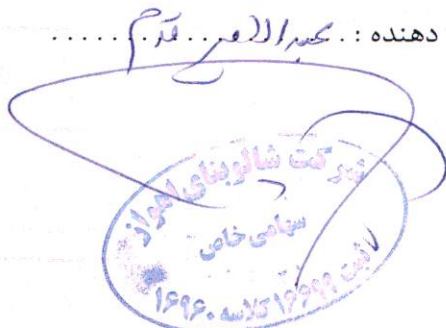 دهنده : عبدا... قدم
شرکت شالوبنای اهواز
سهامی خاص
ثبت ۱۶۶۹۹ کلاسه ۱۶۹۶۰